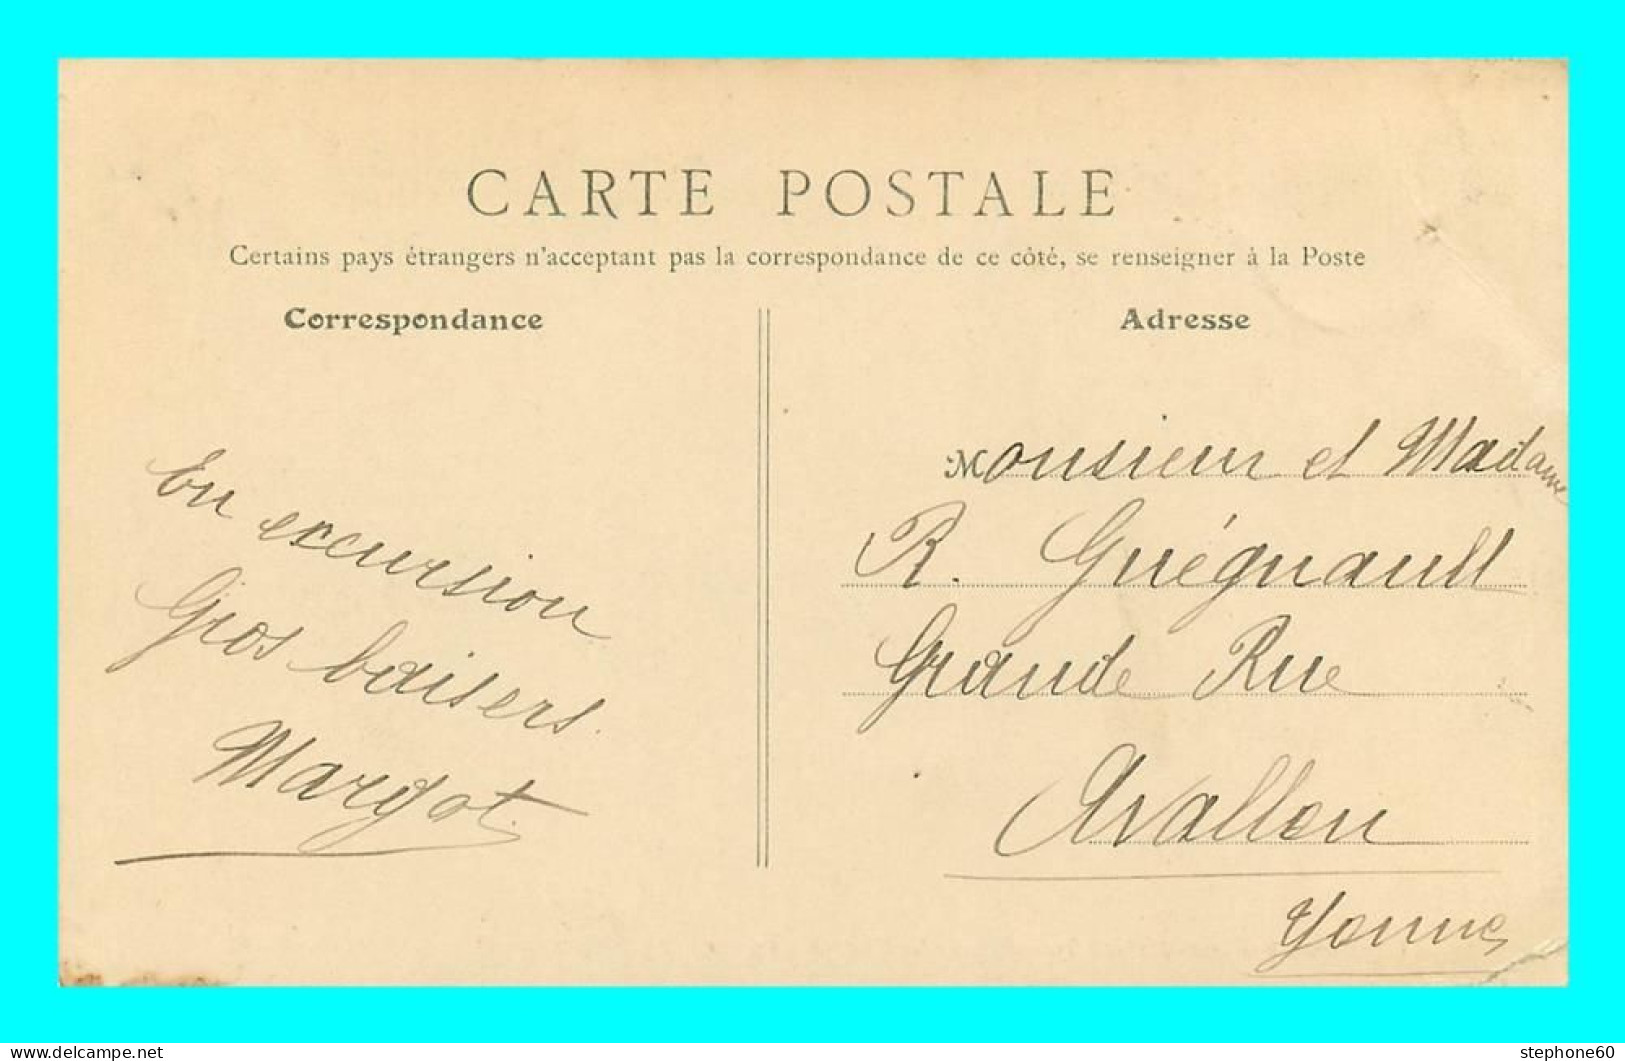 CARTE POSTALE
Certains pays étrangers n'acceptant pas la correspondance de ce côté, se renseigner à la Poste
Correspondance
En excursion
Gros baisers.
Margot.
Adresse
Monsieur et Madame
R. Guégnault
Grande Rue
Avallon
Yonne
delcampe.net
stephone60